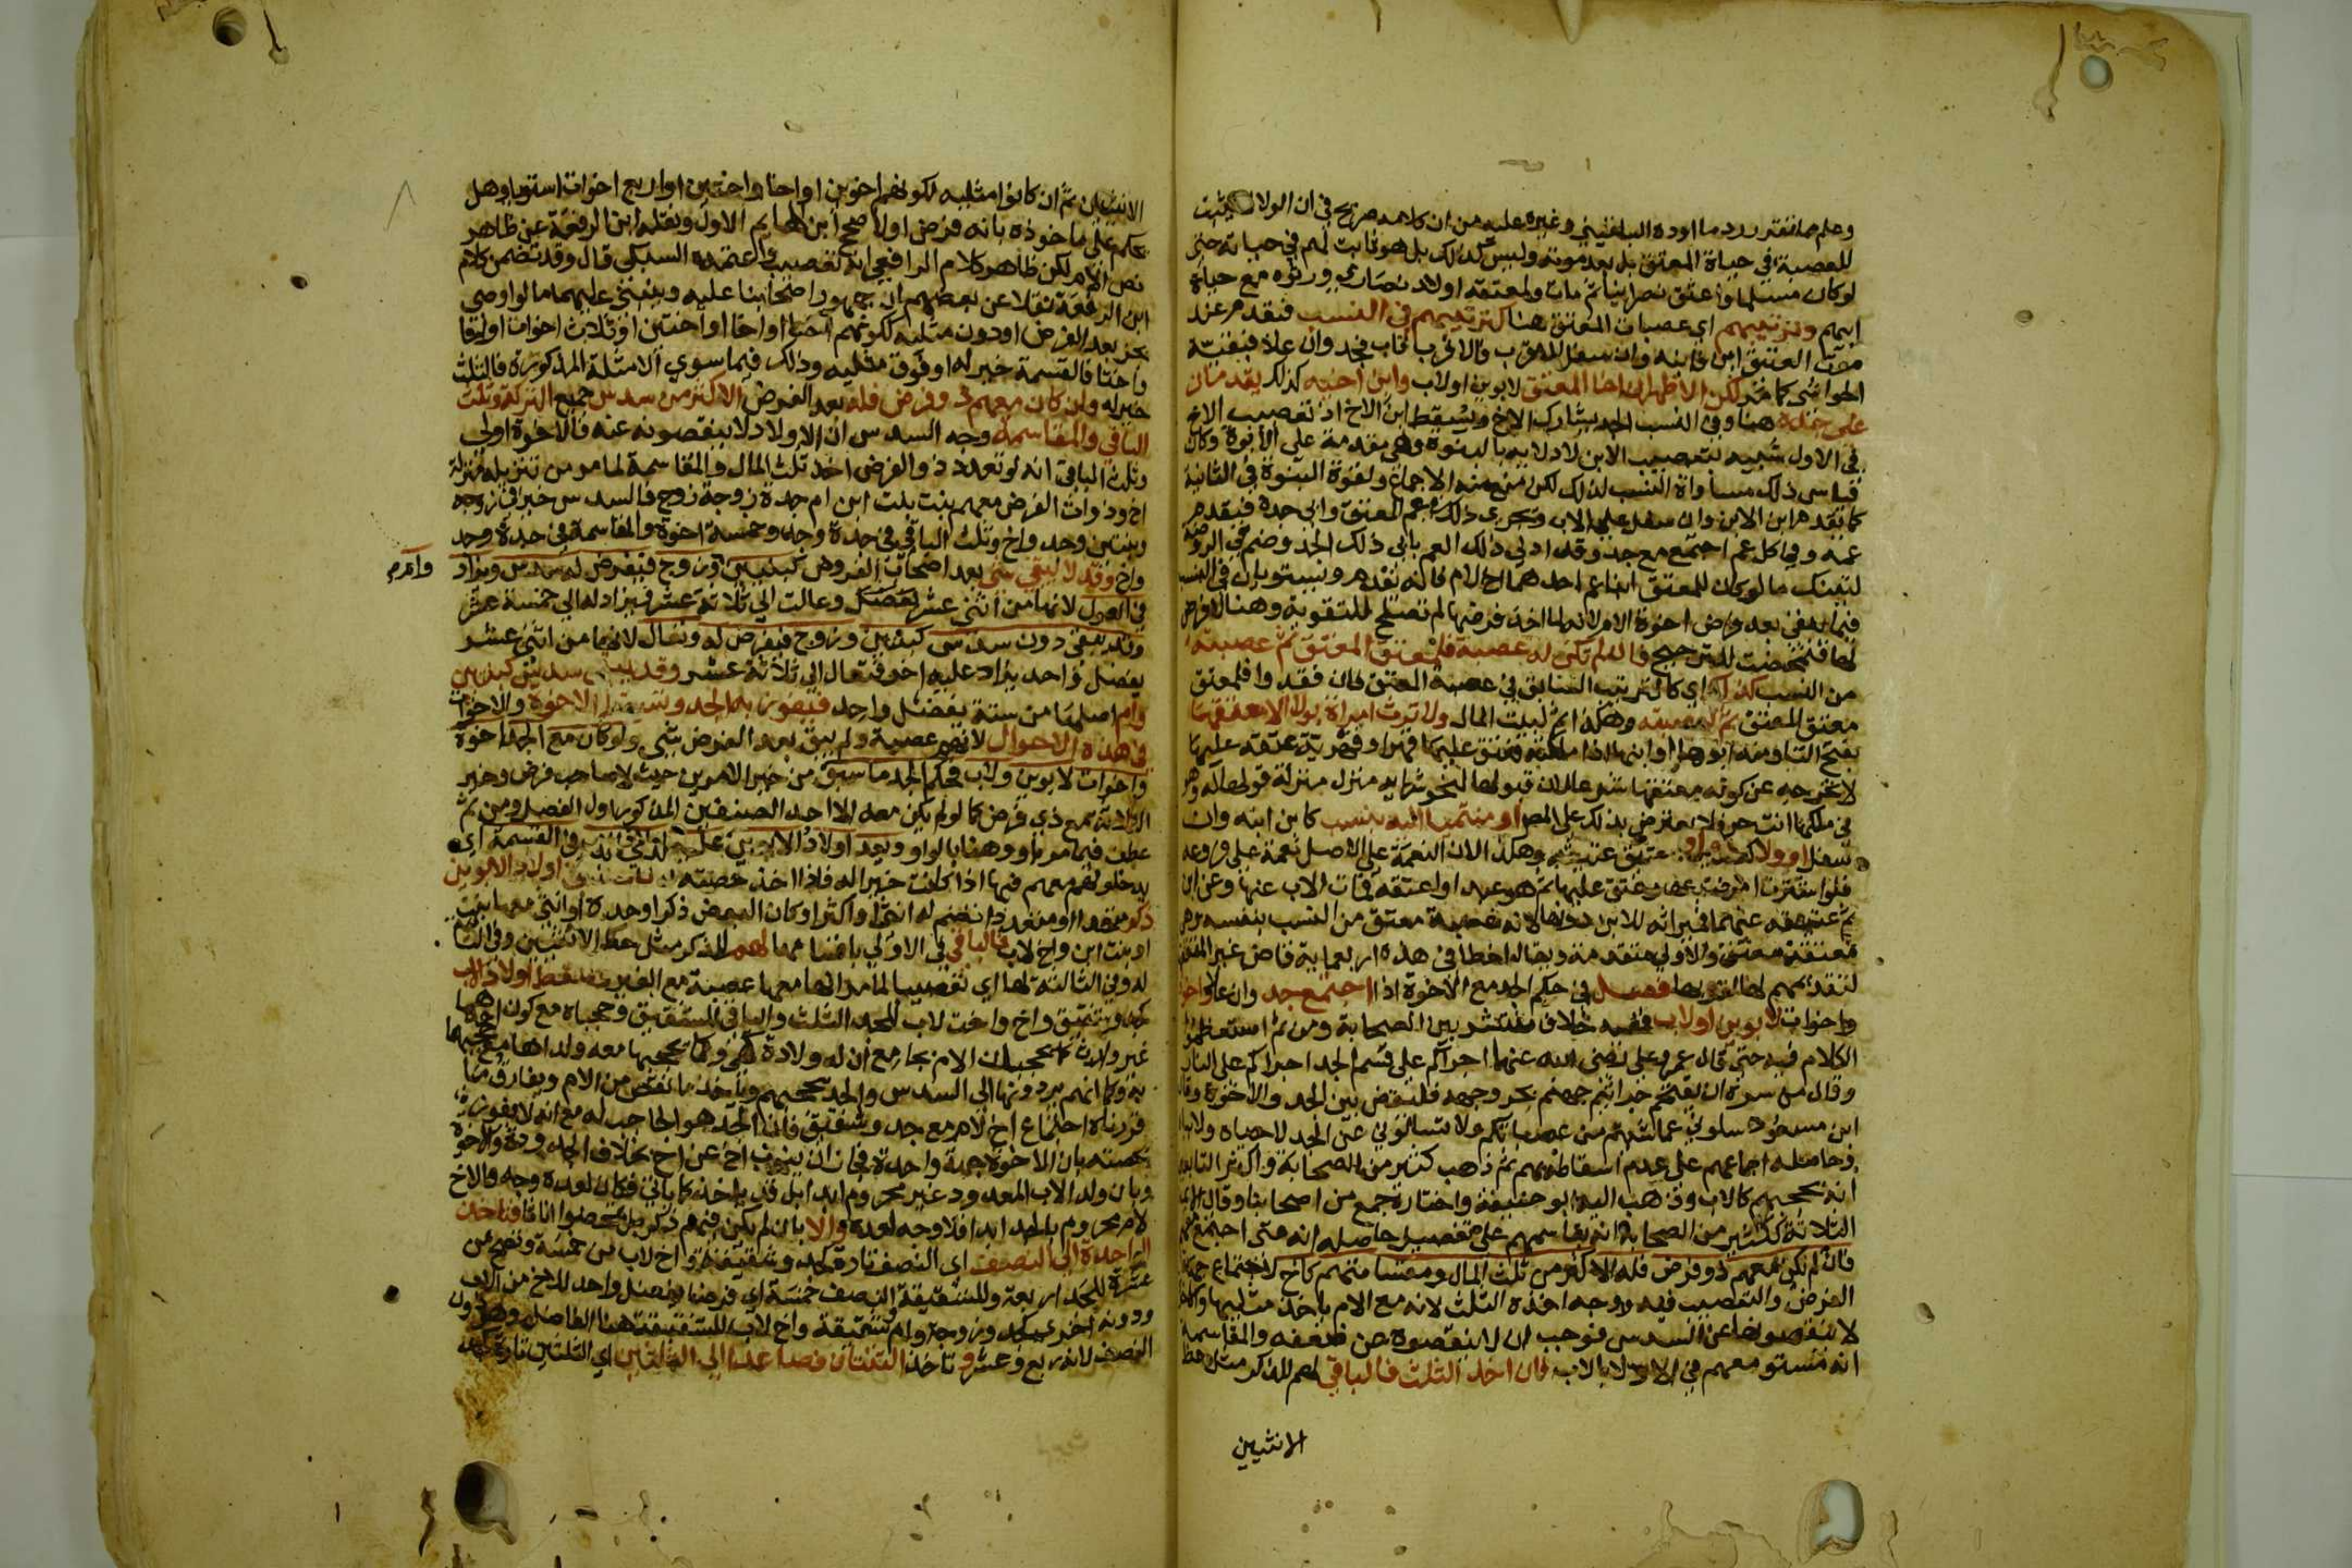 وعلم مما تقرر رد ما اورده البلقيني وغيره عليه من ان كلامه صريح في ان الولا لا يثبت
للعصبة في حياة المعتق بل بعد موته وليس كذلك بل هو ثابت لهم في حياته حتى
لو كان مسلما واعتق نصرانيا ثم مات ولمعتقه اولاد نصاري ورثوه مع حياة
ابيهم وترتيبهم اي عصبات المعتق هنا كترتيبهم في النسب فيقدم عند
موت العتيق ابن فابنه وان سفل الاقرب فالاقرب فاب فجد وان علا فبقية
الحواشي كما مر لكن الاظهر ان اخا المعتق لابوين او لاب وابن اخيه كذلك يقدمان
على جده هنا وفي النسب الجد يشارك الاخ ويسقط ابن الاخ اذ تعصيب الاخ
في الاول شبيه بتعصيب الابن لادلايه بالبنوة وهي مقدمة على الابوة وكان
قياس ذلك مساواة النسب لذلك لكن منع منه الاجماع ولقوة البنوة في الثانية
كما يقدم ابن الابن وان سفل على الاب ويجري ذلك في عم المعتق وابي جده فيقدم
عمه وفي كل عم اجتمع مع جد وقد ادلي ذلك العم بابي ذلك الجد وضم في الروضة
لتينك ما لو كان للمعتق ابنا عم احدهما اخ لام فانه يقدم ويستويان في النسب
فيما يبقى بعد فرض اخوة الام لانه لما اخذ فرضها لم تصلح للتقوية وهنا لا فرض
لها فتمحضت للترجيح فان لم تكن له عصبة فلمعتق المعتق ثم عصبته
من النسب كذلك اي كالترتيب السابق في عصبة المعتق فان فقدوا فلمعتق
معتق المعتق ثم لعصبته وهكذا ثم لبيت المال ولا ترث امراة بولا الا معتقها
بفتح التا ومنه ابوها او ابنها اذا ملكته فعتق عليها قهرا
لا يخرجه عن كونه معتقها شرعا لان قبولها لنحو شرايه منزل منزلة قولها له وهو
في ملكها انت حر فلا يعترض بذلك على المص او منتميا اليه بنسب كابن ابنه وان
سفل او ولا كعتيقه وعتيق عتيقه وهكذا لان النعمة على الاصل نعمة على فروعه
فلو اشترت امراة اباها وعتق عليها ثم هو عبدا واعتقه فمات الاب عنها وعن ابن
ثم عتيقه عنهما فميراثه للابن دونها لانه عصبة معتق من النسب بنفسه وهي
معتقة معتق والاولي متقدمة ويقال اخطا في هذه اربعماية قاض غير المتفقهة
لتقديمهم لها لقربها فصل في حكم الجد مع الاخوة اذا اجتمع جد وان علا واخوة
واخوات لابوين او لاب ففيه خلاف منتشر بين الصحابة ومن ثم استعظموا
الكلام فيه حتى قال عمر وعلي رضي الله عنهما اجراكم على قسم الجد اجراكم على النار
وقال علي من سره ان يقتحم جراثيم جهنم بحر وجهه فليقض بين الجد والاخوة وقال
ابن مسعود سلوني عما شيتم من عصباتكم ولا تسالوني عن الجد لا حياه ولا بياه
وحاصله اجماعهم على عدم اسقاطه بهم ثم ذهب كثير من الصحابة واكثر التابعين
انه يحجبهم كالاب وذهب اليه ابو حنيفة واختاره جمع من اصحابنا وقال الايمة
الثلاثة ككثير من الصحابة انه يقاسمهم على تفصيل حاصله انه متى اجتمع معهم
فان لم يكن معهم ذو فرض فله الاكثر من ثلث المال ومقاسمتهم كاخ لاجتماع جهتي
الفرض والتعصيب فيه ووجه اخذه الثلث لانه مع الام ياخذ مثليها والاخوة
لا ينقصونها عن السدس فوجب ان لا ينقصوه عن ضعفه والمقاسمة
انه مستو معهم في الادلا بالاب فان اخذ الثلث فالباقي لهم للذكر مثل حظ
الانثيين
الانثيين ثم ان كانوا مثليه لكونهم اخوين او اخا واختين او اربع اخوات استويا وهل
يحكم على ماخوذه بانه فرض او لا صحح ابن الهايم الاول ونقله ابن الرفعة عن ظاهر
نص الام لكن ظاهر كلام الرافعي انه تعصيب واعتمده السبكي قال وقد تضمن كلام
ابن الرفعة نقلا عن بعضهم ان جمهور اصحابنا عليه وينبني عليهما ما لو اوصي
بجزء بعد الفرض او دون مثليه لكونهم اخا او اختا او اختين او ثلاث اخوات او اخا
واختا فالقسمة خير له او فوق مثليه وذلك فيما سوي الامثلة المذكورة فالثلث
خير له وان كان معهم ذو فرض فله بعد الفرض الاكثر من سدس جميع التركة وثلث
الباقي والمقاسمة وجه السدس ان الاولاد لا ينقصونه عنه فالاخوة اولي
وثلث الباقي انه لو تعدد ذو الفرض اخذ ثلث المال والمقاسمة لما مر من تنزيله منزلة
اخ وذوات الفرض معهم بنت بنت ابن ام جدة زوجة زوج فالسدس خير في زوجة
وبنتين وجد واخ وثلث الباقي في جدة وجد وخمسة اخوة والمقاسمة في جدة وجد
واخ وقد لا يبقي شي بعد اصحاب الفروض كبنتين وزوج فيفرض له سدس ويزاد
وام
في العول لانها من اثني عشر وعالت الي ثلاثة عشر فيزاد له الي خمسة عشر
وقد يبقى دون سدس كبنتين وزوج فيفرض له وتعال لانها من اثني عشر
يفضل واحد يزاد عليه اخر فتعال الي ثلاثة عشر وقد يبقى سدس كبنتين
وام اصلها من ستة يفضل واحد فيفوز به الجد وتسقط الاخوة والاخوات
في هذه الاحوال لانهم عصبة ولم يبق بعد الفرض شي ولو كان مع الجد اخوة
واخوات لابوين ولاب فحكم الجد ما سبق من خير الامرين حيث لا صاحب فرض وخير
الثلاثة مع ذي فرض كما لو لم يكن معه الا احد الصنفين المذكورين اول الفصل ومن ثم
عطف فيما مر باو وهنا بالواو ويعد اولاد الابوين عليه اولاد الاب في القسمة اي
يدخلونهم معهم فيها اذا كانت خيرا له فاذا اخذ حصته فان كان في اولاد الابوين
ذكر منفرد او متعدد انضم له انثى او اكثر او كان البعض ذكرا وحده او انثى معها بنت
او بنت ابن واخ لاب فالباقي في الاولي باقسامها لهم للذكر مثل حظ الانثيين وفي الثانية
له وفي الثالثة لها اي تعصيبا لما مر انها معها عصبة مع الغير وسقط اولاد الاب
كجد وشقيق واخ واخت لاب للجد الثلث والباقي للشقيق وحجباه مع كون احدهما
غير وارث كما يحجبان الام بجامع ان له ولادة كهي وكما يحجبها معه ولداها مع حجبهما
به وكما انهم يردونها الي السدس والجد يحجبهم وياخذ ما نقص من الام ويفارق ما
قررناه اجتماع اخ لام مع جد وشقيق فان الجد هو الحاجب له مع انه لا يفوز
بحصته بان الاخوة جهة واحدة فجاز ان ينوب اخ عن اخ بخلاف الجدودة والاخوة
وبان ولد الاب المعدود غير محروم ابدا بل قد ياخذ كما ياتي فكان لعده وجه والاخ
لام محروم بالجد ابدا فلا وجه لعده والا بان لم يكن فيهم ذكر بل تمحضوا اناثا فتاخذ
الواحدة الي النصف اي النصف تارة كجد وشقيقة واخ لاب من خمسة وتصح من
عشرة للجد اربعة وللشقيقة النصف خمسة اي فرضا يفضل واحد للاخ من الاب
ودونه اخري كجد وزوجة وام وشقيقة واخ لاب للشقيقة هنا الفاضل وهو دون
النصف لانه ربع وعشر وتاخذ الثنتان فصاعدا الي الثلثين اي الثلثين تارة كجد